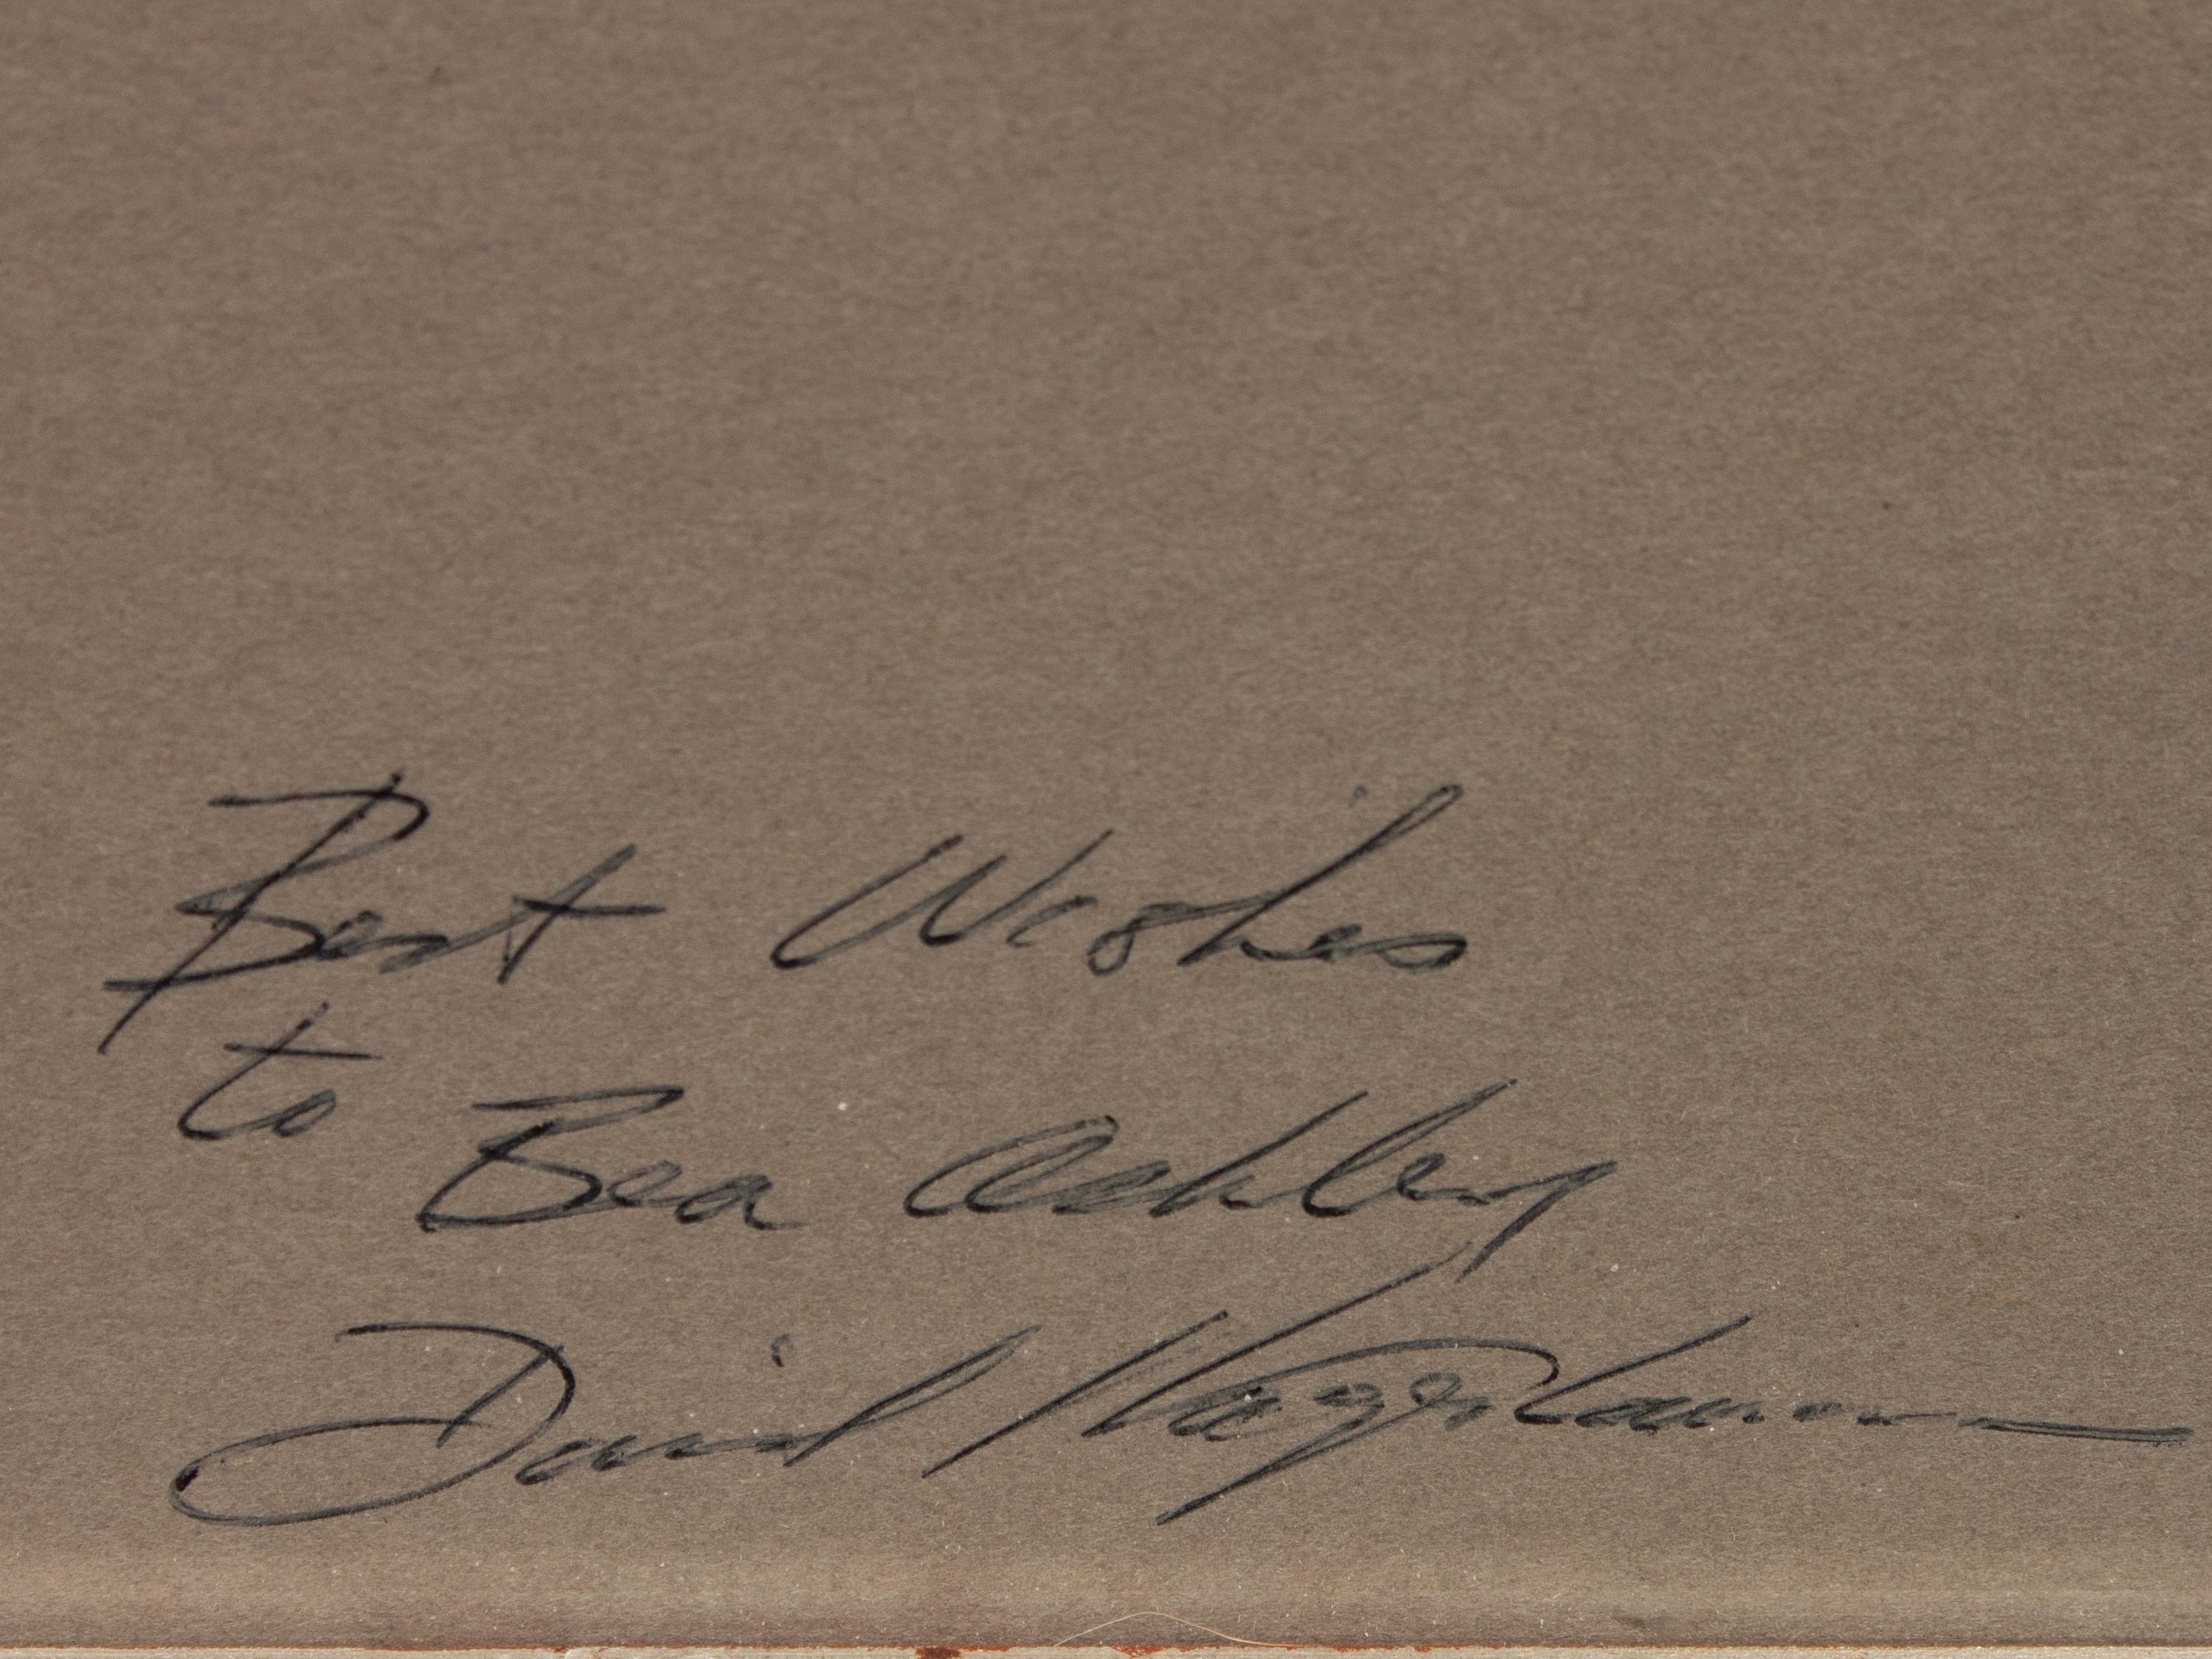 Best Wishes
to
Bea Ashley
David